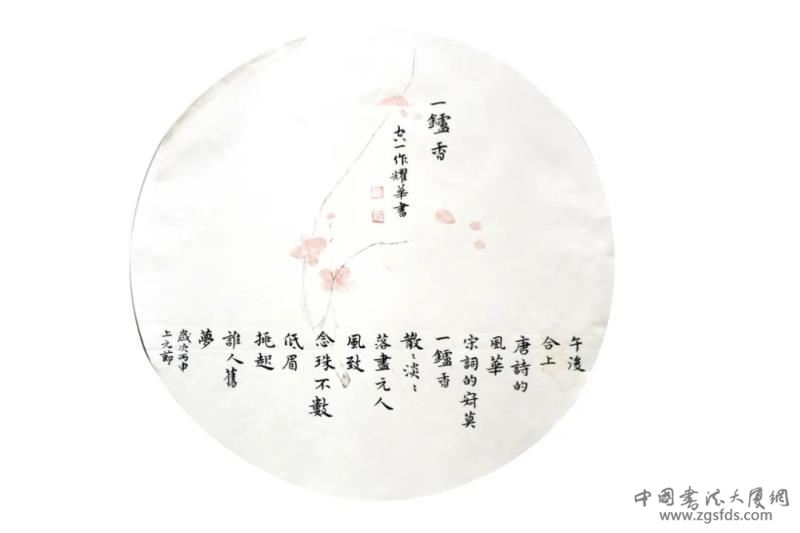 一鑪香
穴一作耀華書
午後
合上
唐詩的
風華
宋詞的寂莫
一鑪香
散〻淡〻
落盡元人
風致
念珠不數
低眉
挑起
誰人舊
夢
歲次丙申
上元節
中国書法大厦網
www.zgsfds.com